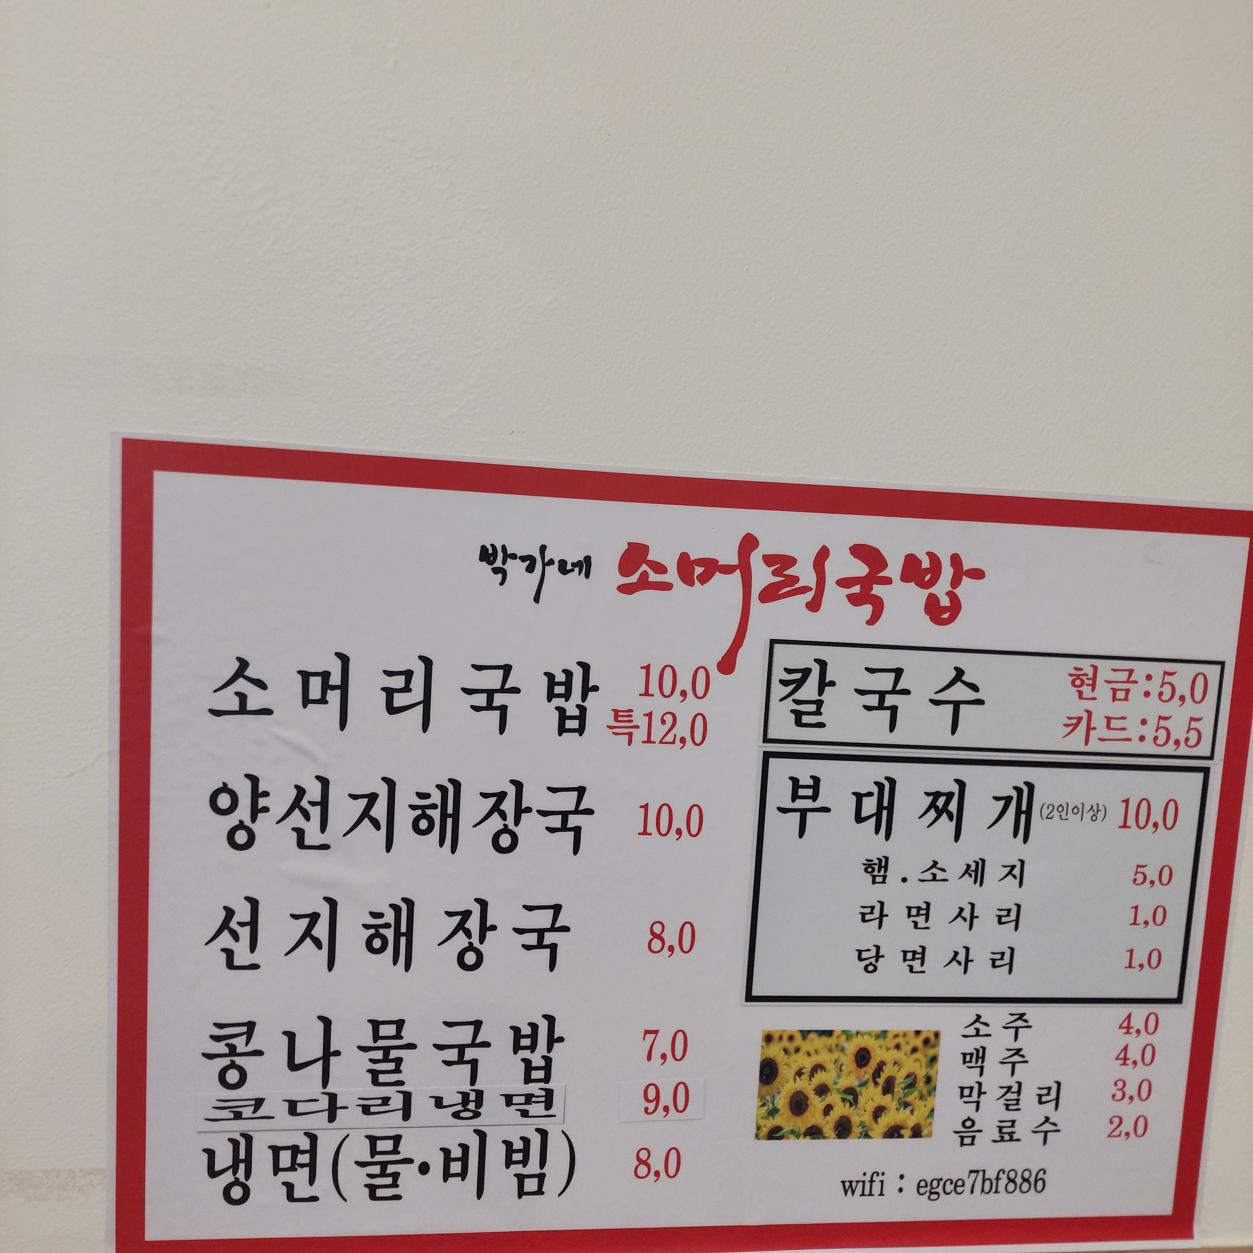 박가네 소머리국밥
소머리국밥 10,0
특12,0
양선지해장국 10,0
선지해장국 8,0
콩나물국밥 7,0
코다리냉면 9,0
냉면(물·비빔) 8,0
칼국수 현금:5,0
카드:5,5
부대찌개(2인이상) 10,0
햄.소세지 5,0
라면사리 1,0
당면사리 1,0
소주 4,0
맥주 4,0
막걸리 3,0
음료수 2,0
wifi : egce7bf886